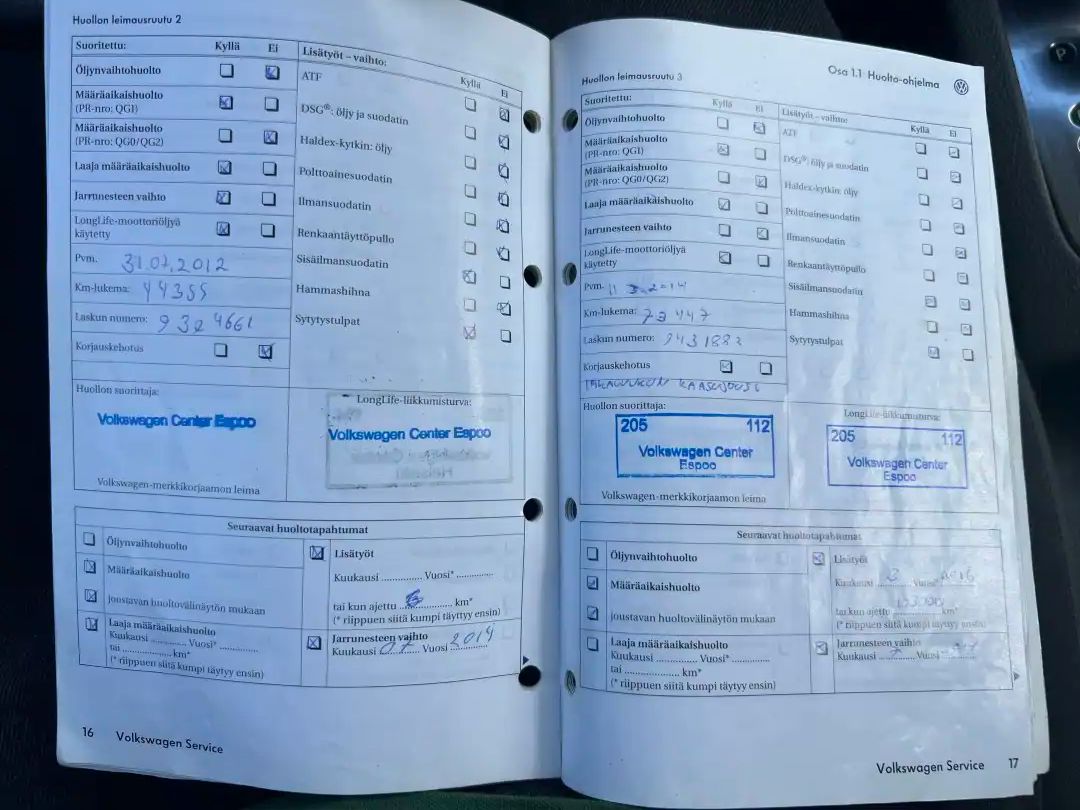 Huollon leimausruutu 2
Suoritettu: Kyllä Ei
Öljynvaihtohuolto
Määräaikaishuolto
(PR-nro: QG1)
Määräaikaishuolto
(PR-nro: QG0/QG2)
Laaja määräaikaishuolto
Jarrunesteen vaihto
LongLife-moottoriöljyä
käytetty
Pvm. 31.07.2012
Km-lukema: 44355
Laskun numero: 9324661
Korjauskehotus
Lisätyöt – vaihto: Kyllä Ei
ATF
DSG®: öljy ja suodatin
Haldex-kytkin: öljy
Polttoainesuodatin
Ilmansuodatin
Renkaantäyttöpullo
Sisäilmansuodatin
Hammashihna
Sytytystulpat
Huollon suorittaja:
Volkswagen Center Espoo
Volkswagen-merkkikorjaamon leima
LongLife-liikkumisturva:
Volkswagen Center Espoo
Seuraavat huoltotapahtumat
Öljynvaihtohuolto
Määräaikaishuolto
joustavan huoltovälinäytön mukaan
Laaja määräaikaishuolto
Kuukausi ............ Vuosi* ............
tai .................... km*
(* riippuen siitä kumpi täytyy ensin)
Lisätyöt
Kuukausi ............ Vuosi* ............
tai kun ajettu ............ km*
(* riippuen siitä kumpi täyttyy ensin)
Jarrunesteen vaihto
Kuukausi 07 Vuosi 2014
16 Volkswagen Service
Osa 1.1 Huolto-ohjelma
Huollon leimausruutu 3
Suoritettu: Kyllä Ei
Öljynvaihtohuolto
Määräaikaishuolto
(PR-nro: QG1)
Määräaikaishuolto
(PR-nro: QG0/QG2)
Laaja määräaikaishuolto
Jarrunesteen vaihto
LongLife-moottoriöljyä
käytetty
Pvm. 11 3.2014
Km-lukema: 73447
Laskun numero: 9431882
Korjauskehotus
Lisätyöt – vaihto: Kyllä Ei
ATF
DSG®: öljy ja suodatin
Haldex-kytkin: öljy
Polttoainesuodatin
Ilmansuodatin
Renkaantäyttöpullo
Sisäilmansuodatin
Hammashihna
Sytytystulpat
Huollon suorittaja:
205 112
Volkswagen Center
Espoo
Volkswagen-merkkikorjaamon leima
LongLife-liikkumisturva:
205 112
Volkswagen Center
Espoo
Seuraavat huoltotapahtumat
Öljynvaihtohuolto
Määräaikaishuolto
joustavan huoltovälinäytön mukaan
Laaja määräaikaishuolto
Kuukausi ............ Vuosi* ............
tai .................... km*
(* riippuen siitä kumpi täytyy ensin)
Lisätyöt
Kuukausi 3 Vuosi* 2016
tai kun ajettu ............ km*
(* riippuen siitä kumpi täytyy ensin)
Jarrunesteen vaihto
Kuukausi ............ Vuosi ............
Volkswagen Service 17